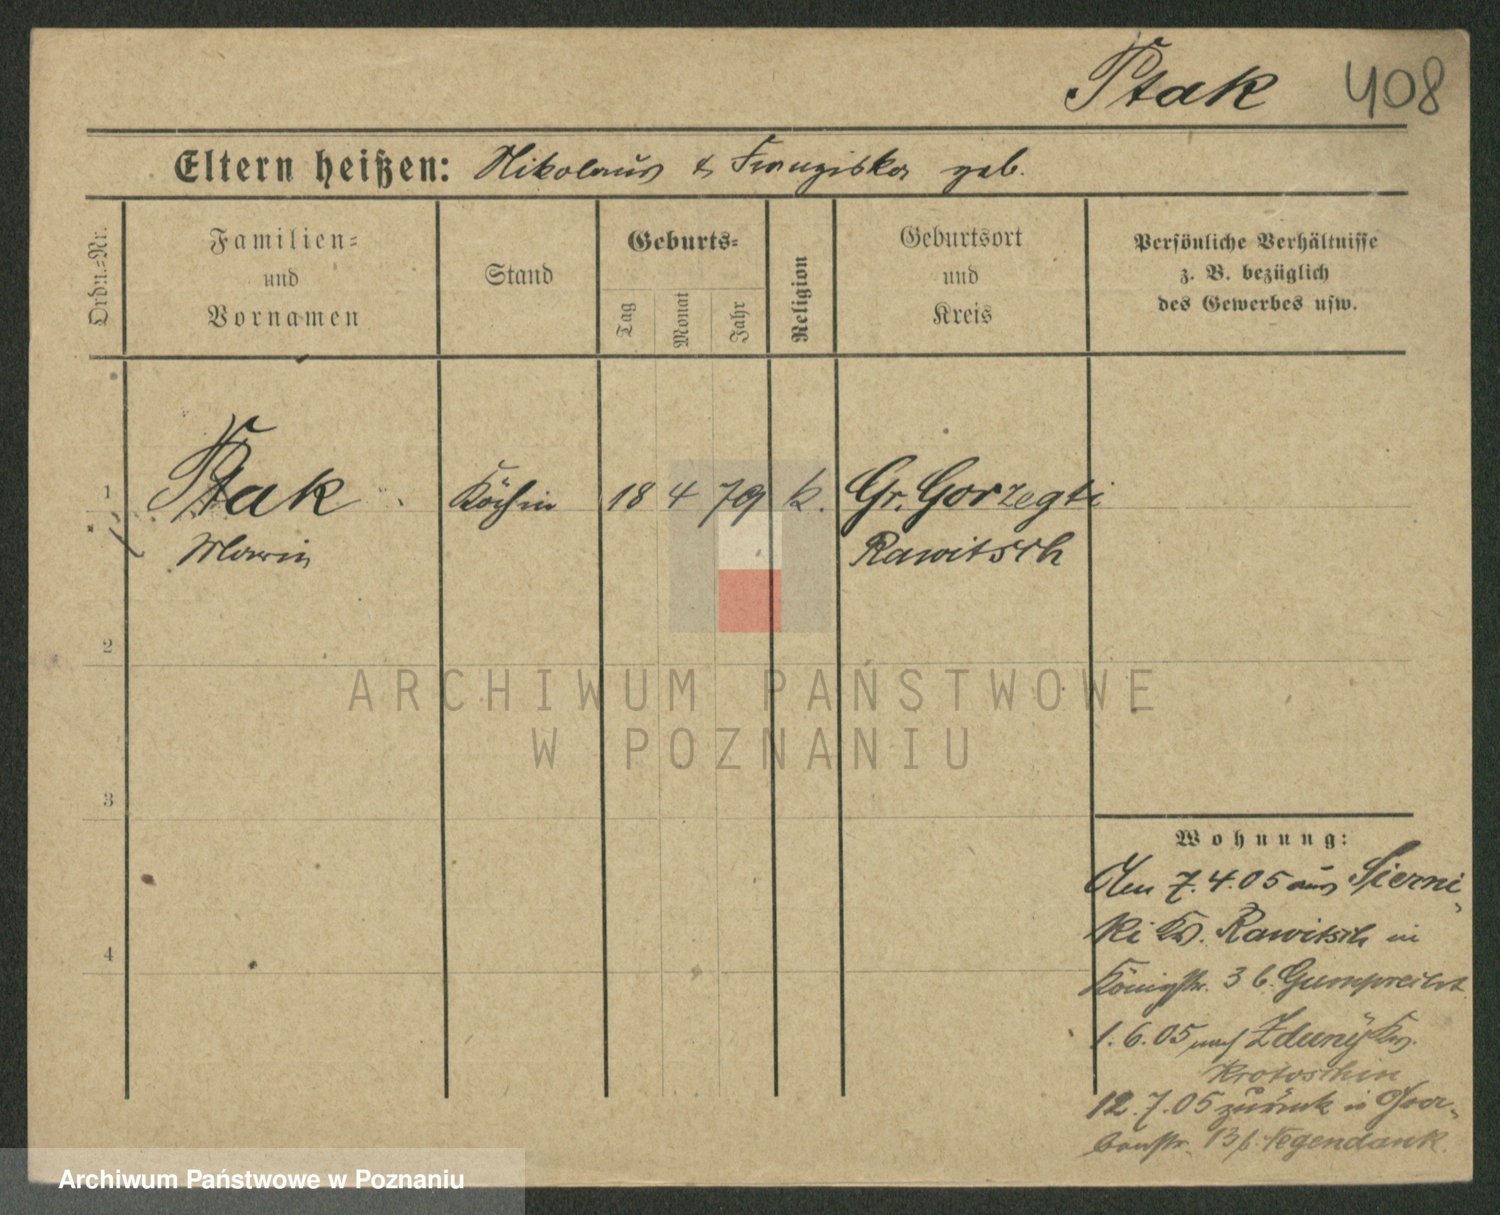 Ptak 408
Eltern heißen: Nikolaus & Franziska geb.
Ordn.=Nr.
Familien=
und
Vornamen
Stand
Geburts=
Tag Monat Jahr
Religion
Geburtsort
und
Kreis
Persönliche Verhältnisse
z. B. bezüglich
des Gewerbes usw.
1 Ptak Köchin 18 4 79 k. Gr. Gorzegti
Marie Rawitsch
2
3
4
Wohnung:
Den 7.4.05 aus Sierni
ki Kr. Rawitsch in
Königstr. 3 b. Gumprecht
1.6.05 nach Zduny Krs.
Krotoschin
12.7.05 zurück in
13 b. Tegendank.
ARCHIWUM PAŃSTWOWE
W POZNANIU
Archiwum Państwowe w Poznaniu